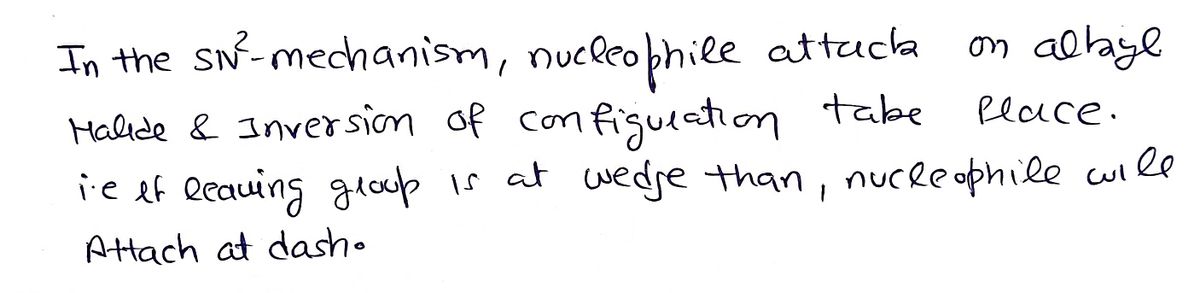 In the SN²-mechanism, nucleophile attack on alkyl
Halide & Inversion of configuration take place.
i.e if leaving group is at wedge than, nucleophile will
Attach at dash.